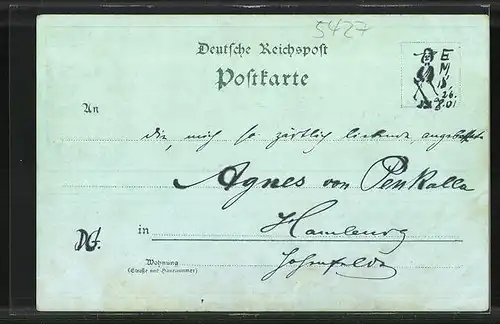 5427
Deutsche Reichspost
Postkarte
E
M
26.
8.01
An
die, mich so zärtlich liebende, angebetete
Agnes von Penkalla
in Hamburg
DG.
Hohenfelde
Wohnung
(Straße und Hausnummer)